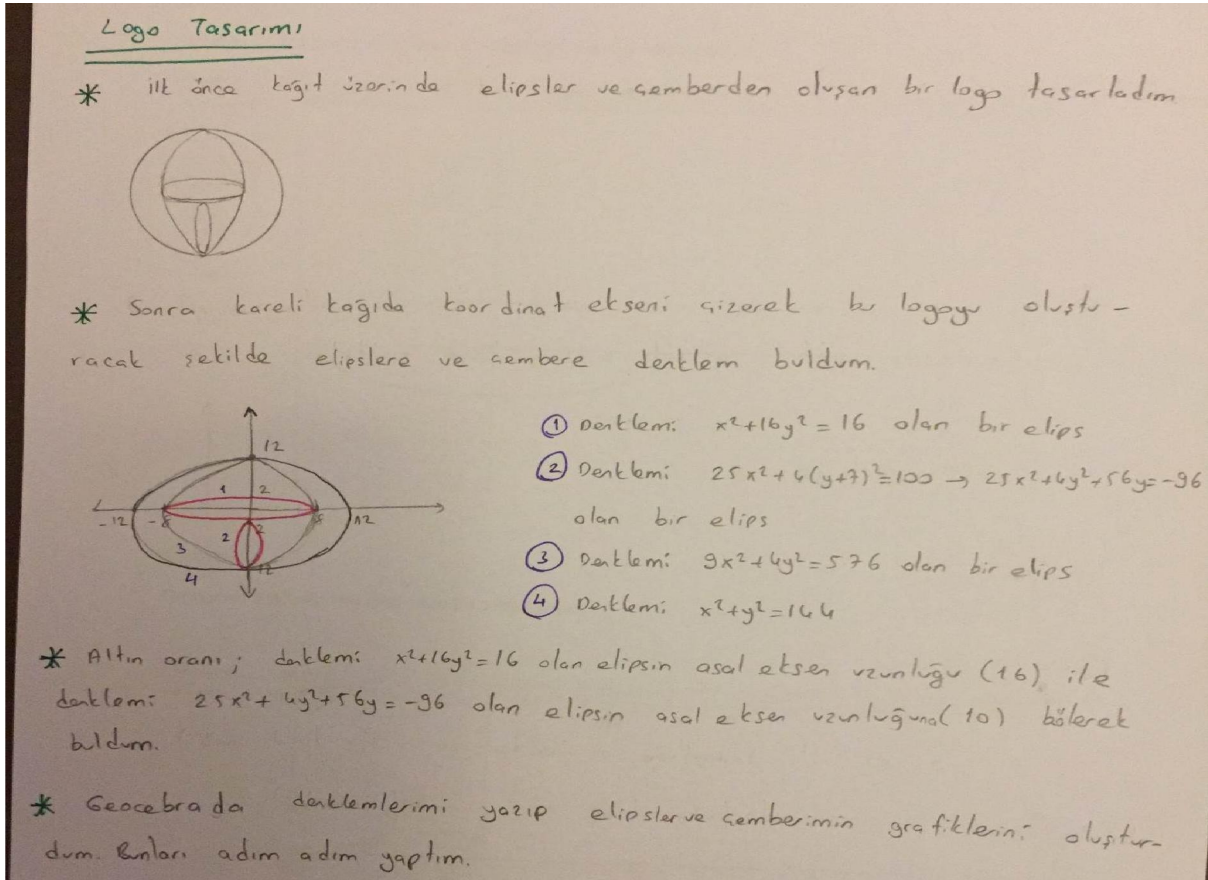 Logo Tasarımı
* ilk önce kağıt üzerinde elipsler ve çemberden oluşan bir logo tasarladım
* Sonra kareli kağıda koordinat ekseni çizerek bu logoyu oluştu-
racak şekilde elipslere ve çembere denklem buldum.
12
1 2
-12 -8 8 12
2 2
3
4 12
① Denklemi x²+16y²=16 olan bir elips
② Denklemi 25x²+4(y+7)²=100 → 25x²+4y²+56y=-96
olan bir elips
③ Denklemi 9x²+4y²=576 olan bir elips
④ Denklemi x²+y²=144
* Altın oranı; denklemi x²+16y²=16 olan elipsin asal eksen uzunluğu (16) ile
denklemi 25x²+4y²+56y=-96 olan elipsin asal eksen uzunluğuna (10) bölerek
buldum.
* Geocebrada denklemlerimi yazıp elipsler ve çemberimin grafiklerini oluştur-
dum. Bunları adım adım yaptım.